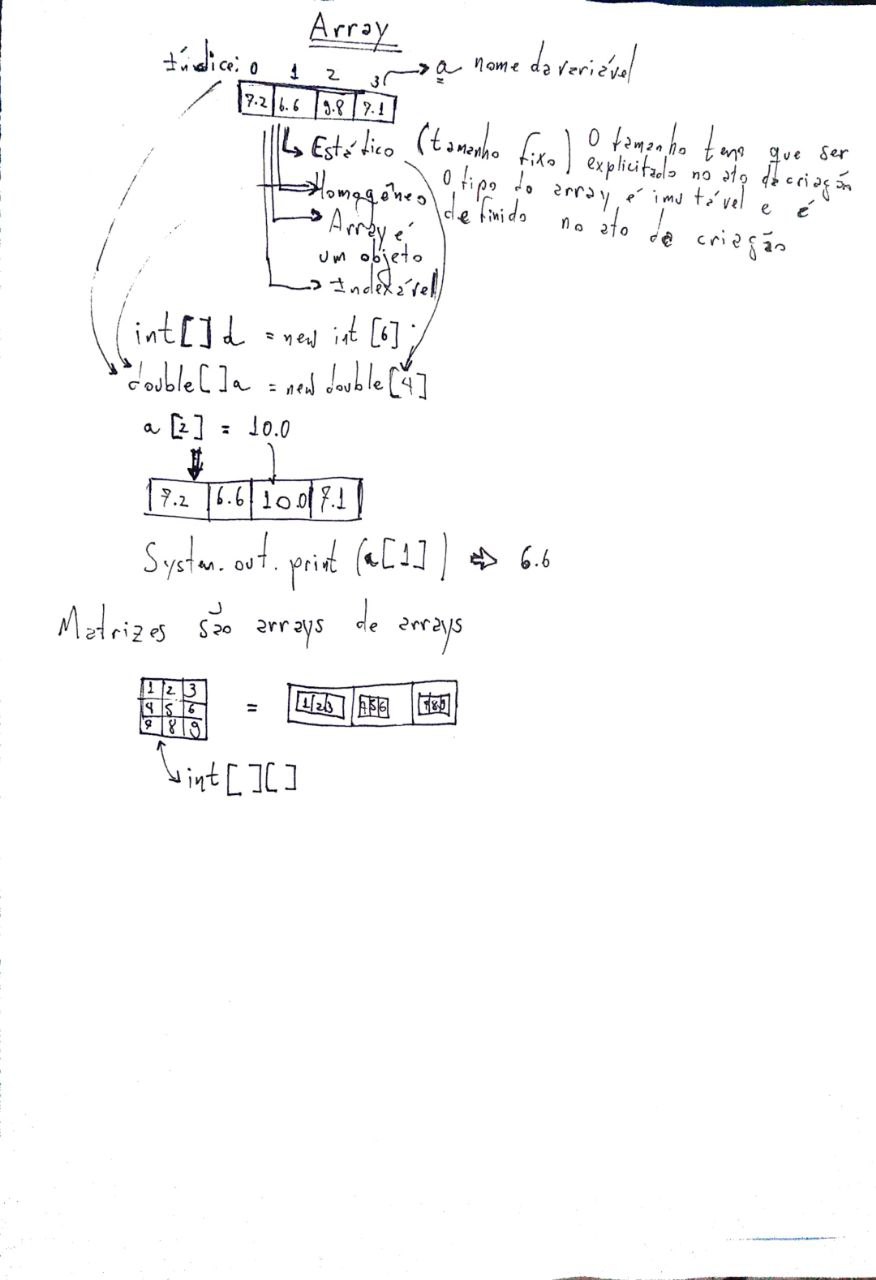 Array
Índice: 0 1 2 3 a nome da variável
7.2 6.6 9.8 7.1
Estático (tamanho fixo) O tamanho tem que ser explicitado no ato de criação
Homogêneo O tipo do array é imutável e é definido no ato de criação
Array é
um objeto
Indexável
int[] d = new int [6]
double[] a = new double[4]
a [2] = 10.0
7.2 6.6 10.0 7.1
System.out.print (a[1]) => 6.6
Matrizes são arrays de arrays
1 2 3
4 5 6 = 1 2 3 4 5 6 7 8 9
7 8 9
int[][]